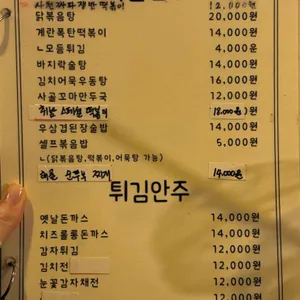 닭볶음탕 20,000원
계란폭탄떡볶이 14,000원
ㄴ모듬튀김 4,000운
바지락술탕 14,000원
김치어묵우동탕 16,000원
사골꼬마만두국 12,000원
18,000원
우삼겹된장술밥 14,000원
셀프볶음밥 5,000원
ㄴ(닭볶음탕,떡볶이,어묵탕 가능)
해물 순두부 찌개 14,000원
튀김안주
옛날돈까스 14,000원
치즈롤롤돈까스 14,000원
감자튀김 12,000원
김치전 12,000원
눈꽃감자채전 12,000원
12,000원